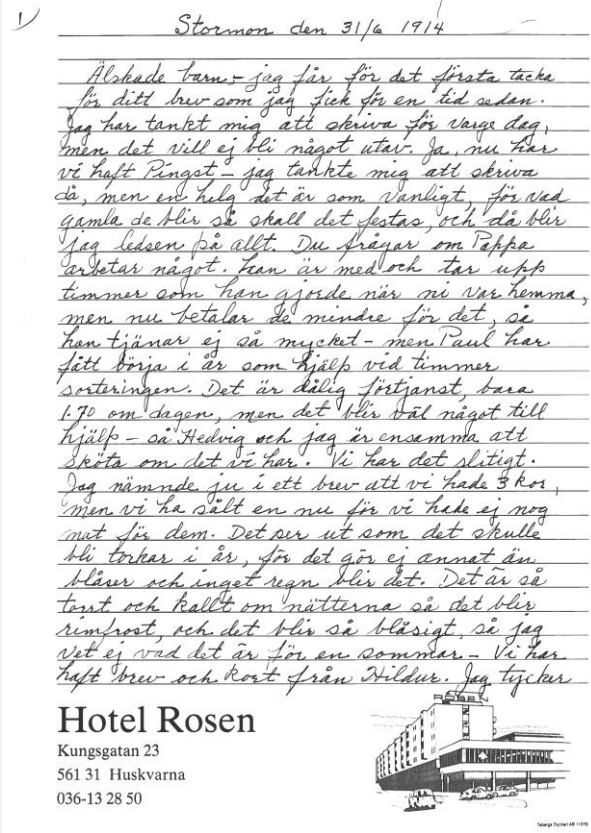 1)
Stormon den 31/6 1914
Älskade barn,- jag får för det första tacka
för ditt brev som jag fick för en tid sedan.
Jag har tankt mig att skriva för varge dag,
men det vill ej bli något utav. Ja, nu har
vi haft Pingst - jag tankte mig att skriva
då, men en helg det är som vanligt, för vad
gamla de blir så skall det festas, och då blir
jag ledsen på allt. Du frågar om Pappa
arbetar något. han är med och tar upp
timmer som han gjorde när ni var hemma,
men nu betalar de mindre för det, så
han tjänar ej så mycket - men Paul har
fått börja i år som hjälp vid timmer
sorteringen. Det är dålig förtjanst, bara
1.70 om dagen, men det blir väl något till
hjälp - så Hedvig och jag är ensamma att
sköta om det vi har. Vi har det slitigt.
Jag nämnde ju i ett brev att vi hade 3 kor,
men vi ha sålt en nu för vi hade ej nog
mat för dem. Det ser ut som det skulle
bli torkar i år, för det gör ej annat än
blåser och inget regn blir det. Det är så
torrt och kallt om nätterna så det blir
rimfrost, och det blir så blåsigt, så jag
vet ej vad det är för en sommar - Vi har
haft brev och kort från Hildur. Jag tycker
Hotel Rosen
Kungsgatan 23
561 31 Huskvarna
036-13 28 50
ROSEN
Tabergs Tryckeri AB